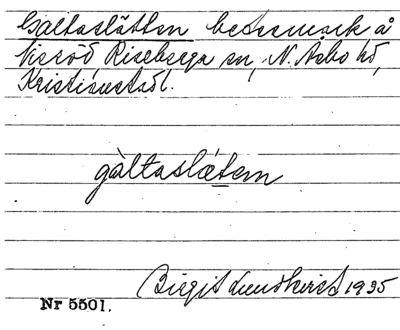 Galtaslätten betesmark å
Visröd Riseberga sn, N. Åsbo hd,
Kristianstads l.
gàltaslætem
Birgit Lundkvist 1935
Nr 5501.